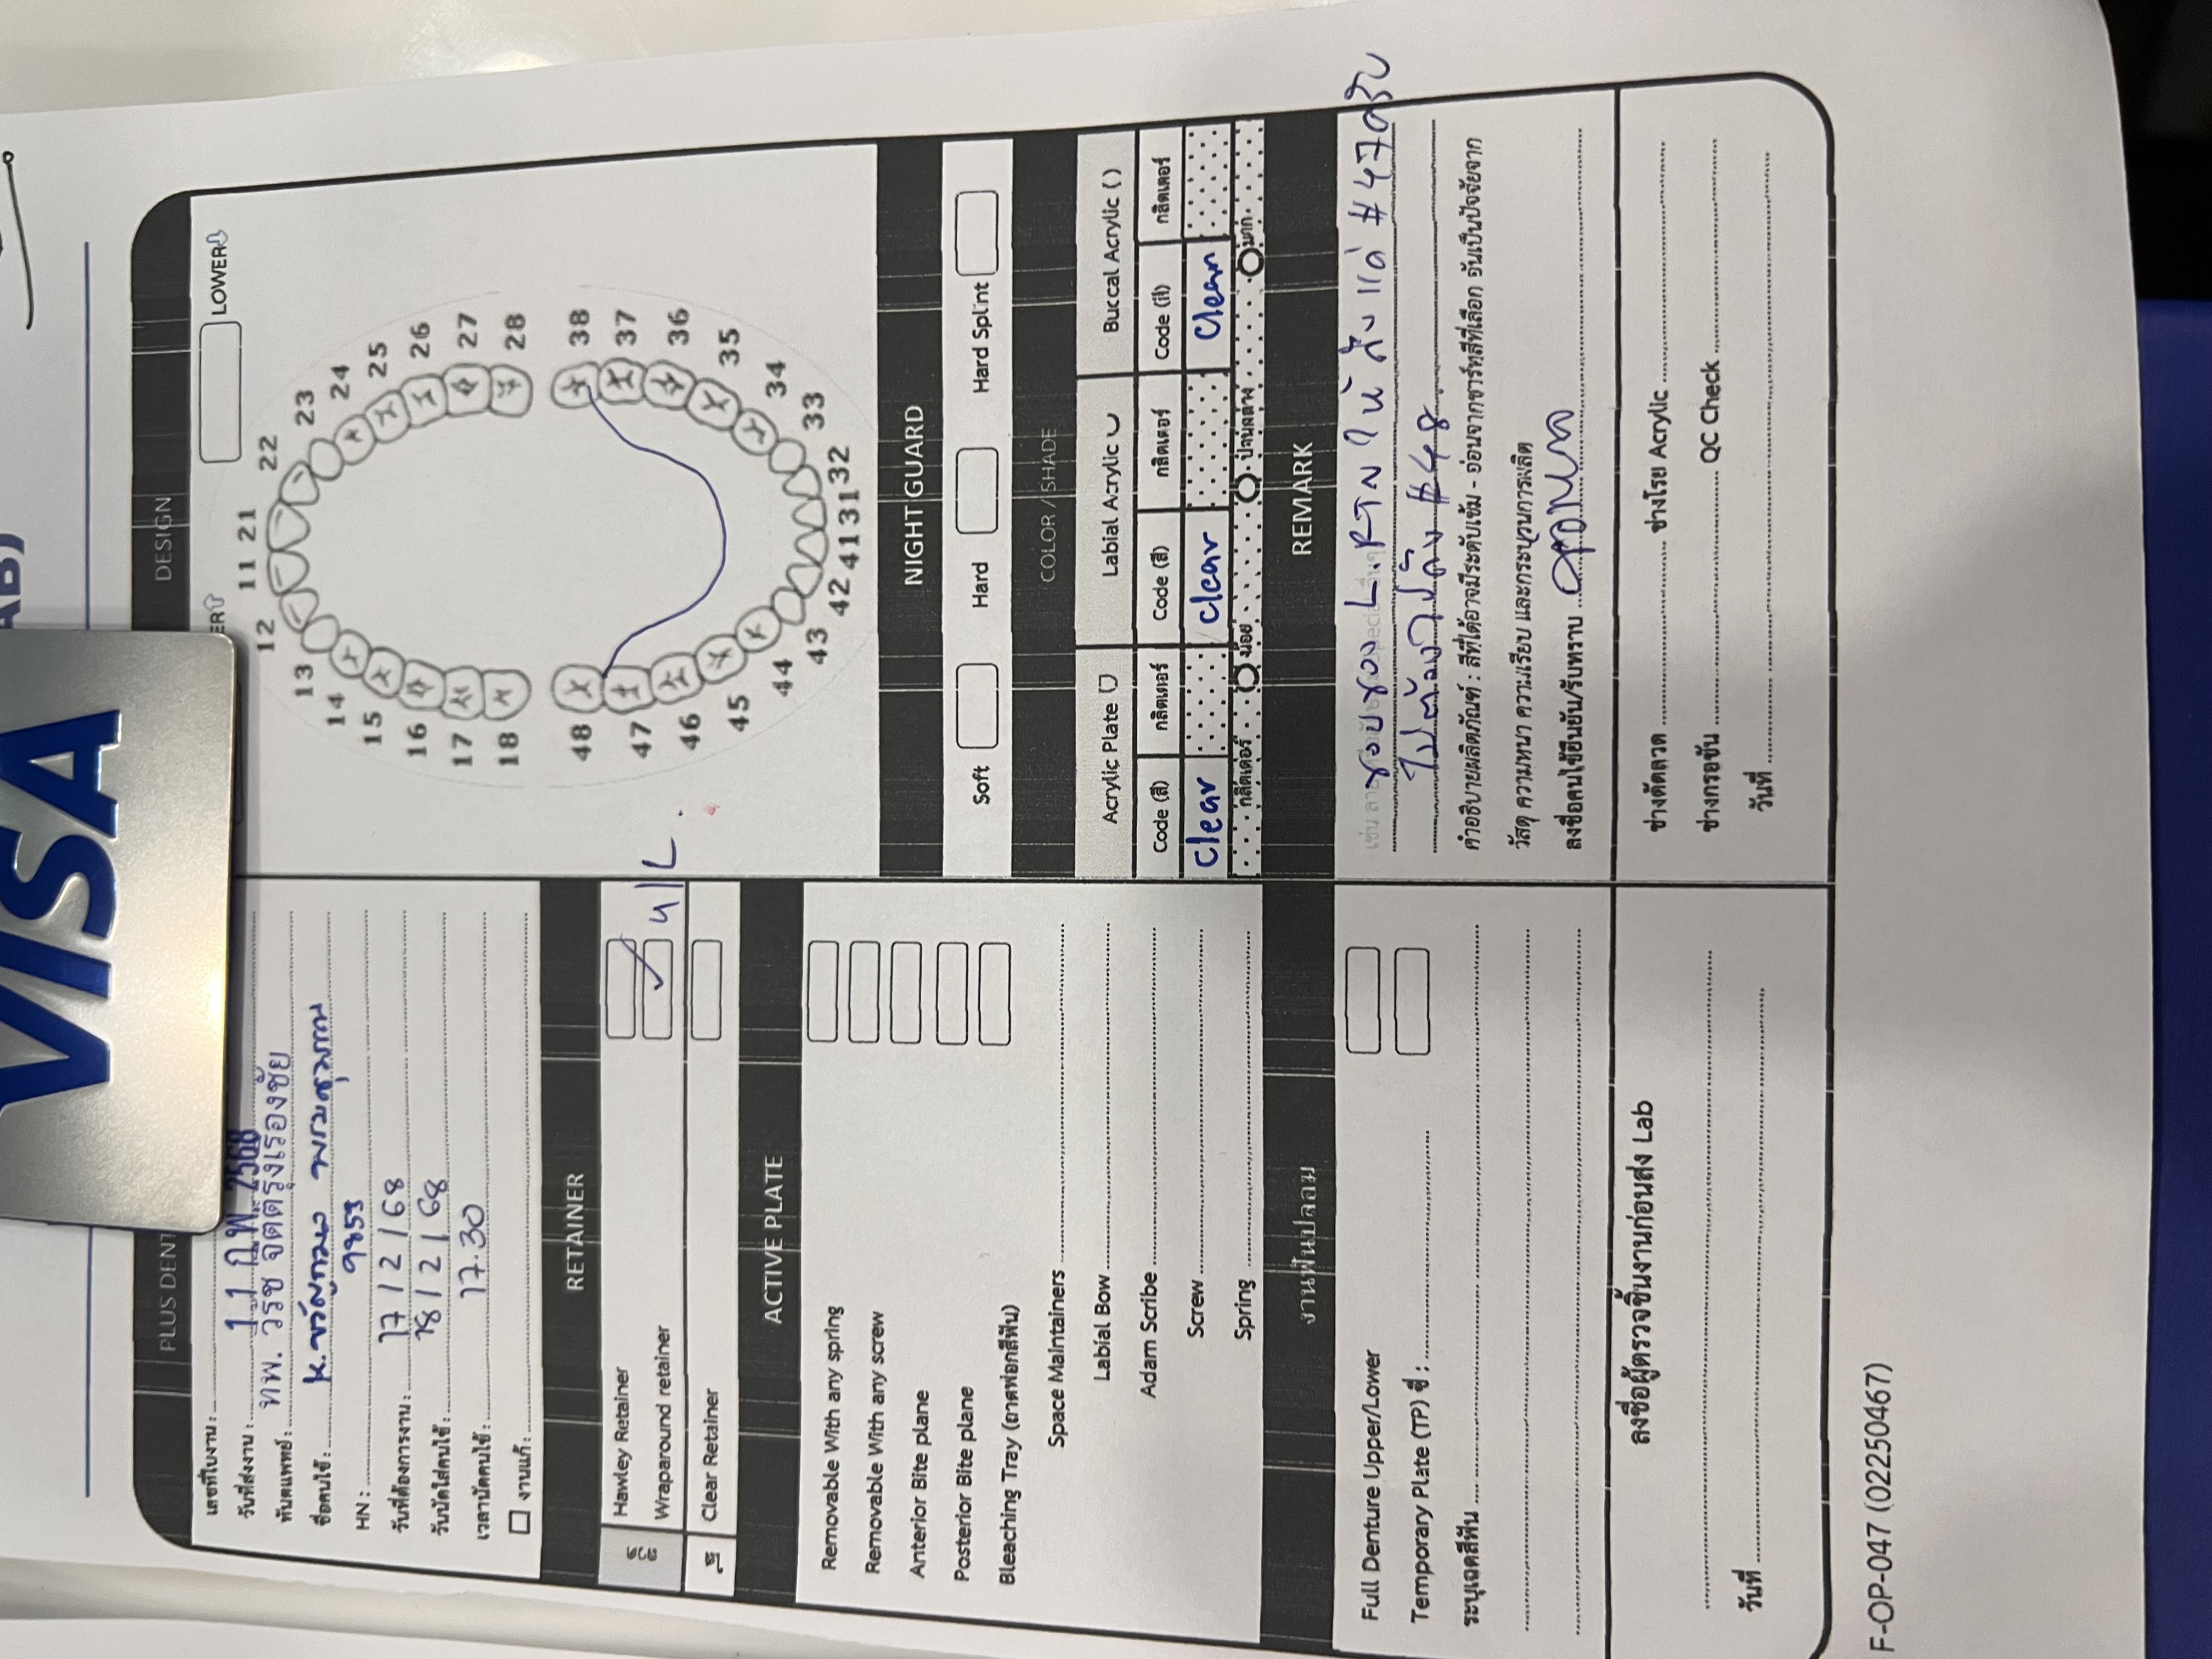 VISA
AB)
PLUS DENT
เลขที่ใบงาน :
วันที่ส่งงาน : 11 ก.พ. 2568
ทันตแพทย์ : ทพ. วิรัช จิตต์รุ่งเรืองชัย
ชื่อคนไข้ : K. ขวัญกมล
HN : 9853
วันที่ต้องการงาน : 17 / 2 / 68
วันนัดใส่คนไข้ : 18 / 2 / 68
เวลานัดคนไข้ : 17.30
งานแก้ :
RETAINER
ลวด
Hawley Retainer
Wraparound retainer ✓ U/L.
ใส
Clear Retainer
ACTIVE PLATE
Removable With any spring
Removable With any screw
Anterior Bite plane
Posterior Bite plane
Bleaching Tray (ถาดฟอกสีฟัน)
Space Maintainers
Labial Bow
Adam Scribe
Screw
Spring
งานฟันปลอม
Full Denture Upper/Lower
Temporary Plate (TP) ซี่ :
ระบุเฉดสีฟัน
ลงชื่อผู้ตรวจชิ้นงานก่อนส่ง Lab
วันที่
DESIGN
ER LOWER
11 21
12 22
13 23
14 24
15 25
16 26
17 27
18 28
48 38
47 37
46 36
45 35
44 34
43 33
42 41 31 32
NIGHT GUARD
Soft Hard Hard Splint
COLOR / SHADE
Acrylic Plate Labial Acrylic Buccal Acrylic ( )
Code (สี) กลิตเตอร์ Code (สี) กลิตเตอร์ Code (สี) กลิตเตอร์
Clear clear Clear
กลิตเตอร์ น้อย ปานกลาง มาก
REMARK
ขอบของ L. RTN ให้ถึงแค่ #47ครับ
ไม่ต้องไปถึง #48.
คำอธิบายผลิตภัณฑ์ : สีที่ได้อาจมีระดับเข้ม - อ่อนจากชาร์ทสีที่เลือก อันเป็นปัจจัยจาก
วัสดุ ความหนา ความเรียบ และกระบวนการผลิต
ลงชื่อคนไข้ยืนยัน/รับทราบ
ช่างดัดลวด ช่างโรย Acrylic
ช่างกรอขัน QC Check
วันที่
F-OP-047 (02250467)